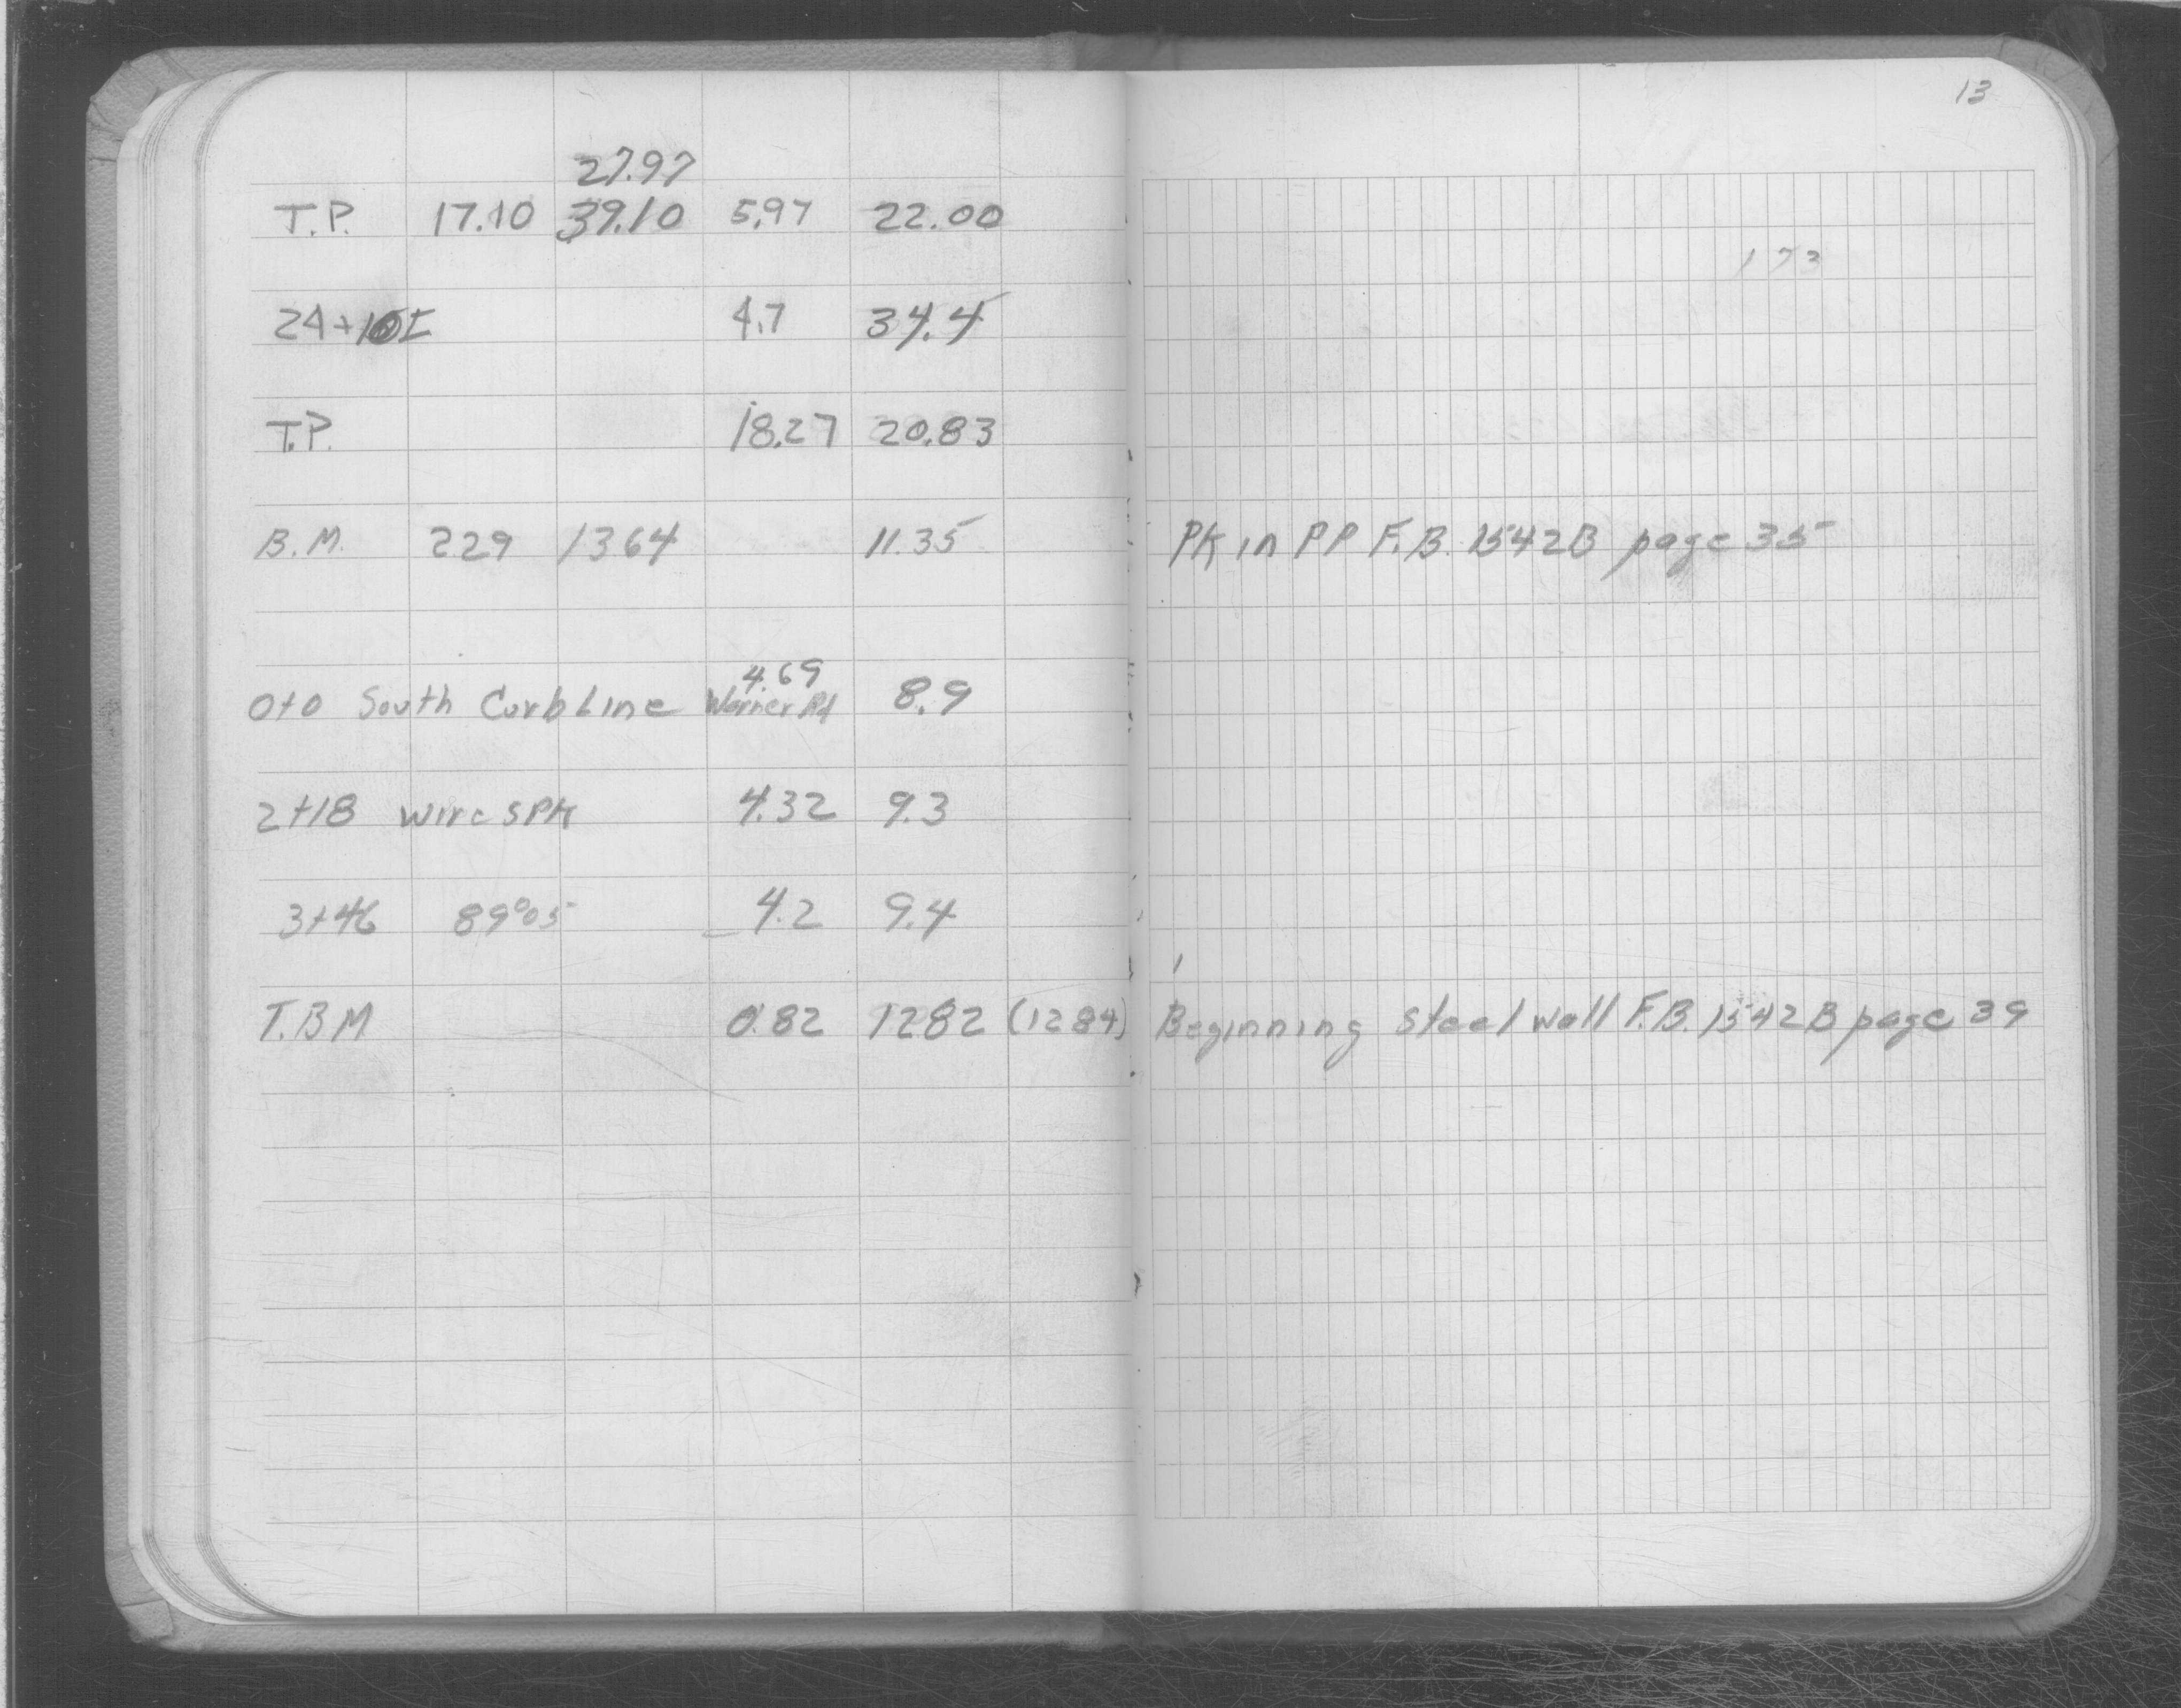 13
27.97
T.P. 17.10 39.10 5.97 22.00
173
24+10± 4.7 34.4
T.P. 18.27 20.83
B.M. 229 1364 11.35 PK in PP F.B. 1542B page 35
4.69
0+0 South Curb Line Warner Rd 8.9
2+18 Wire SPK 4.32 9.3
3+46 89°05 4.2 9.4
T.B M 0.82 1282 (1284) Beginning Steel wall F.B. 1542B page 39